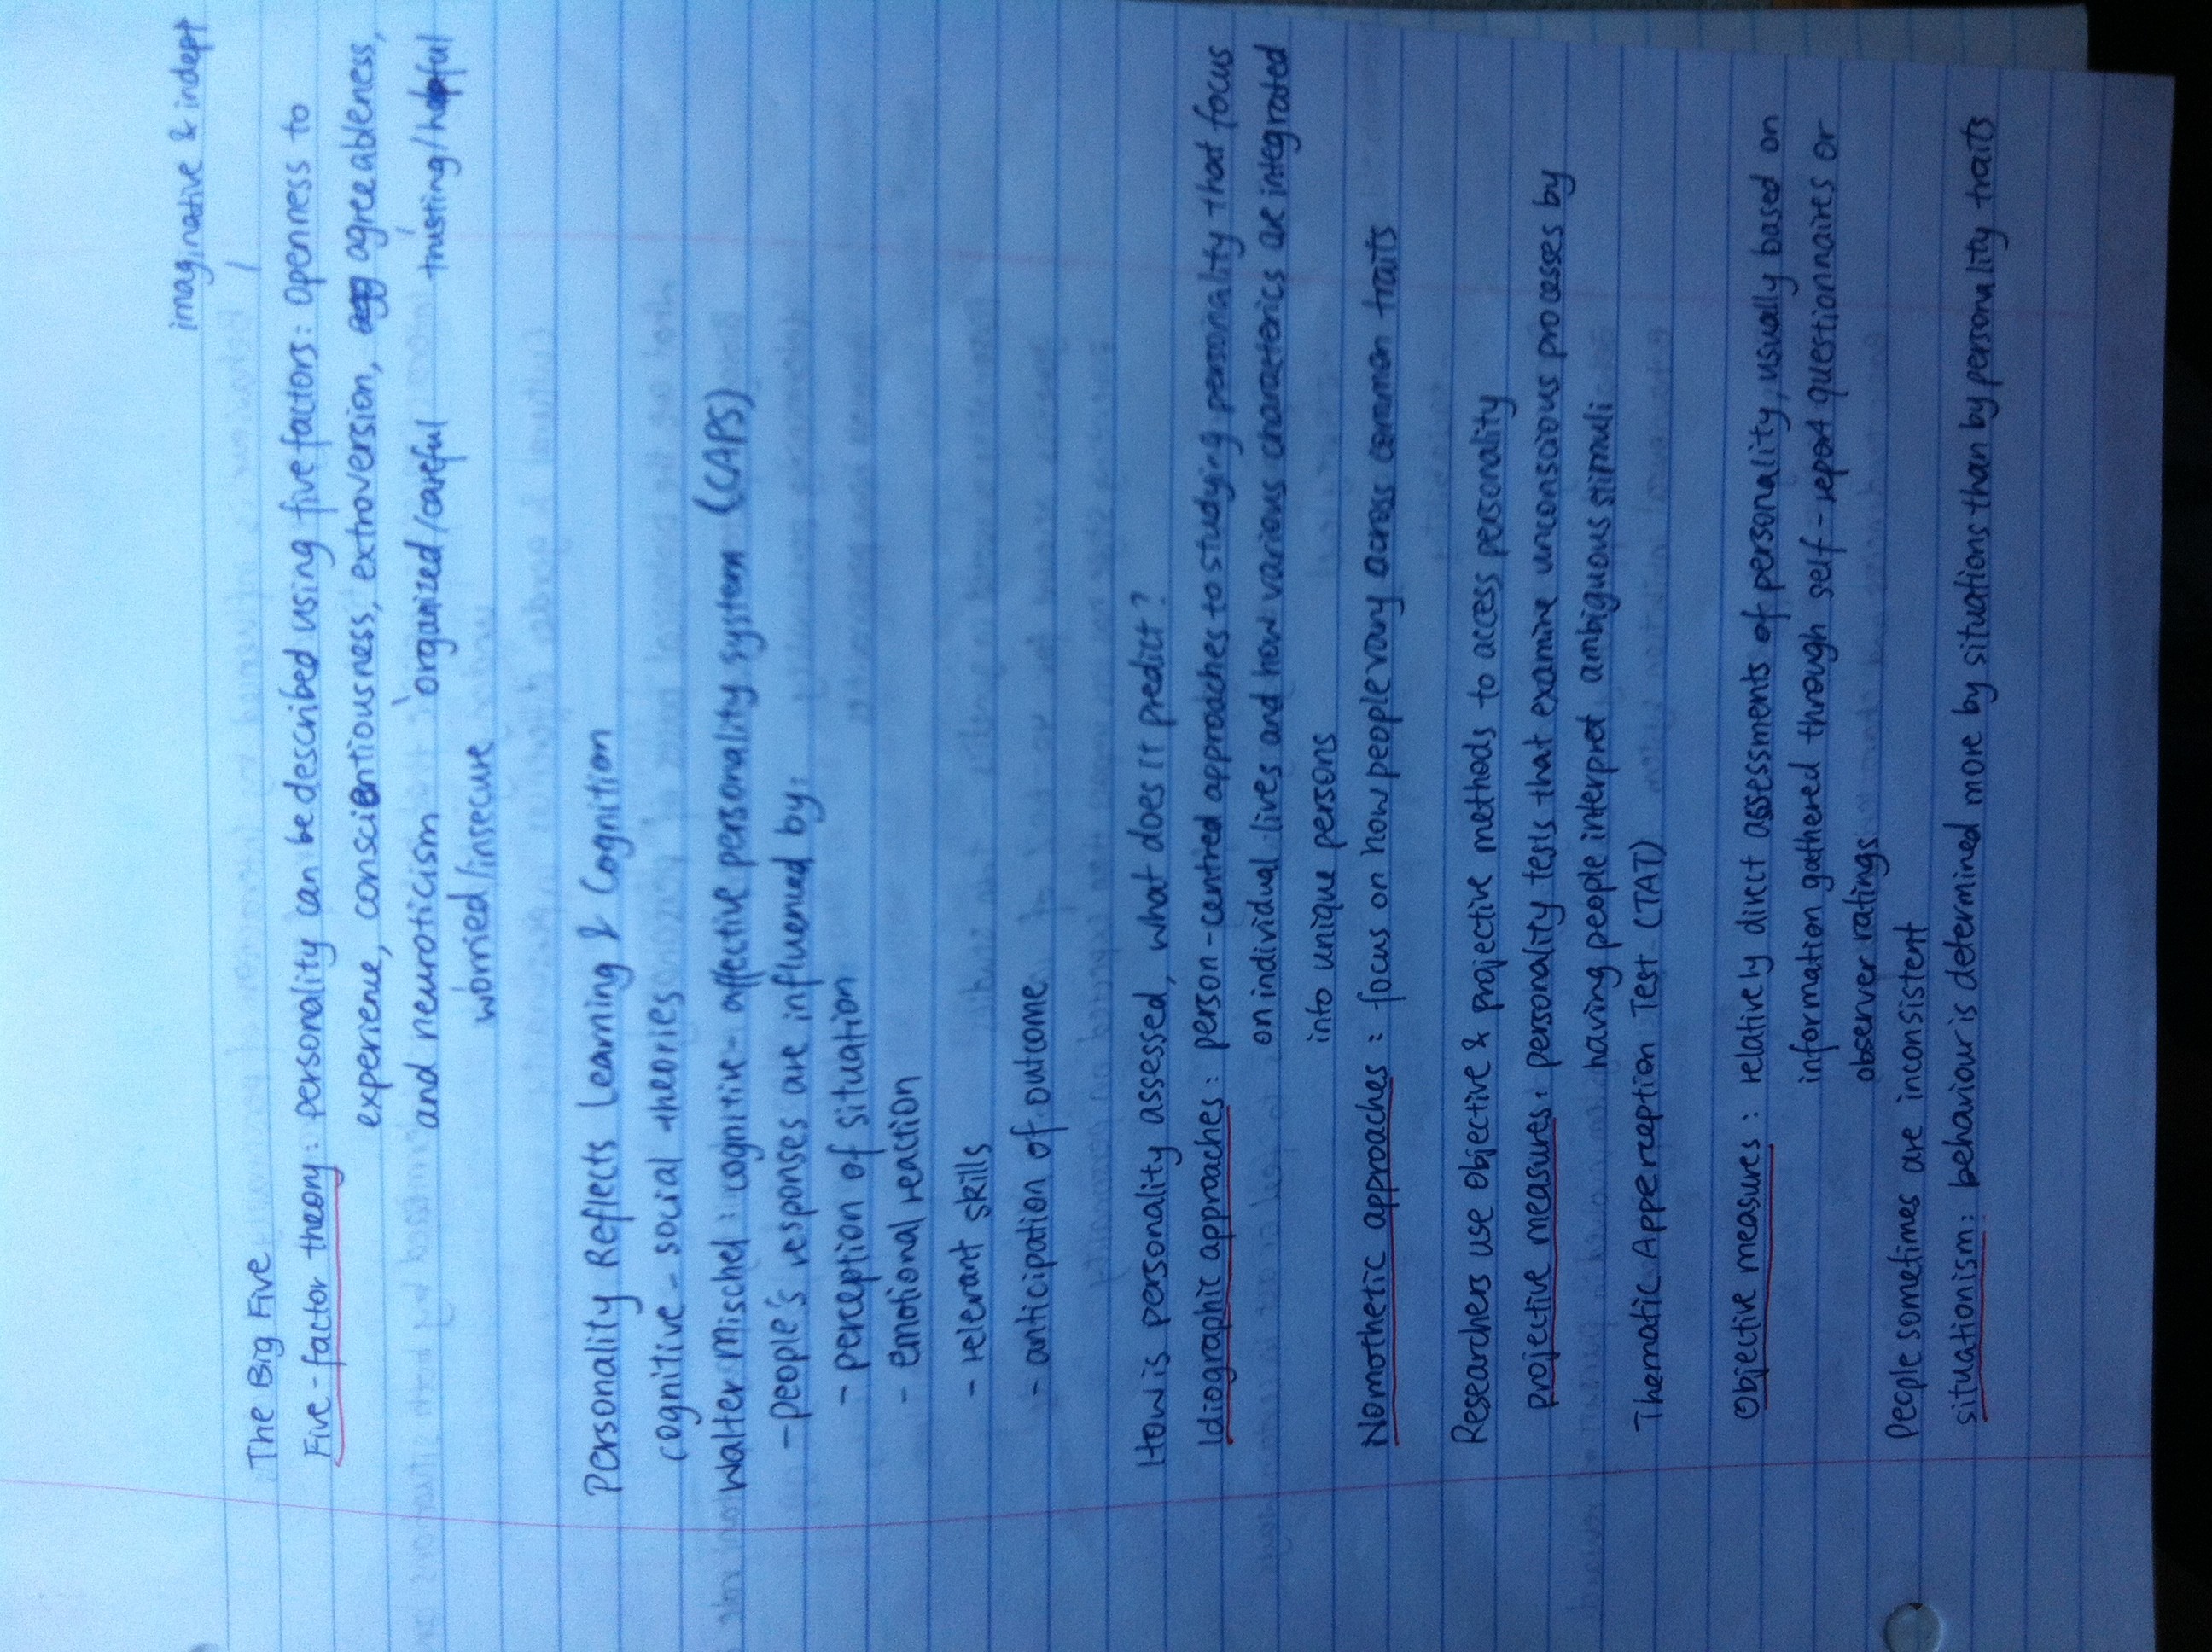 imaginative & indept
The Big Five
Five-factor theory: personality can be described using five factors: openness to
experience, conscientiousness, extroversion, agreeableness,
and neuroticism organized/careful trusting/helpful
worried/insecure
Personality Reflects Learning & Cognition
cognitive-social theories
Walter Mischel: cognitive-affective personality system (CAPS)
-people's responses are influenced by:
- perception of situation
- emotional reaction
- relevant skills
- anticipation of outcome
How is personality assessed, what does it predict?
Idiographic approaches: person-centred approaches to studying personality that focus
on individual lives and how various characterics are integrated
into unique persons
Nomothetic approaches: focus on how people vary across common traits
Researchers use objective & projective methods to access personality
projective measures: personality tests that examine unconscious processes by
having people interpret ambiguous stimuli
Thematic Apperception Test (TAT)
Objective measures: relatively direct assessments of personality, usually based on
information gathered through self-report questionnaires or
observer ratings
People sometimes are inconsistent
situationism: behaviour is determined more by situations than by personality traits